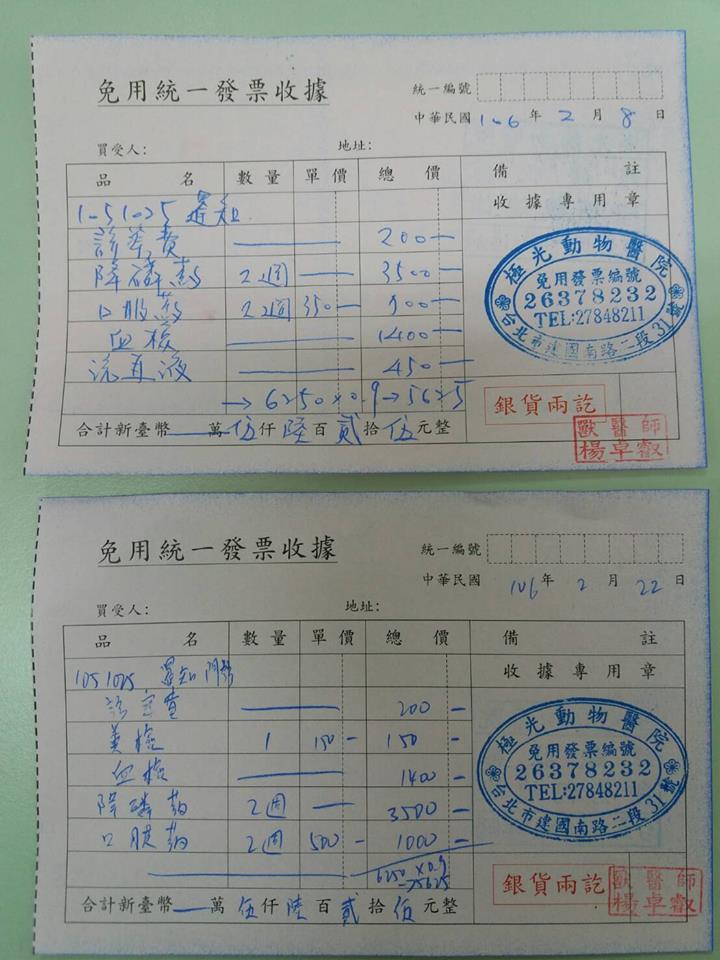 免用統一發票收據
統一編號
中華民國 106 年 2 月 8 日
買受人： 地址：
品名 數量 單價 總價 備註
收據專用章
1051025
診察費 200-
降磷藥 2週 3500-
口服藥 2週 350- 900-
血檢 1400-
流直液 450-
→ 6250×0.9→5625
極光動物醫院
免用發票編號
26378232
TEL:27848211
台北市建國南路二段31號
銀貨兩訖
獸醫師
楊卓叡
合計新臺幣 萬伍仟陸百貳拾伍元整
免用統一發票收據
統一編號
中華民國 106 年 2 月 22 日
買受人： 地址：
品名 數量 單價 總價 備註
收據專用章
1051025
200-
1 150- 150-
血檢 1400-
降磷藥 2週 3500-
口服藥 2週 500- 1000-
6250×0.9
5625
極光動物醫院
免用發票編號
26378232
TEL:27848211
台北市建國南路二段31號
銀貨兩訖
獸醫師
楊卓叡
合計新臺幣 萬伍仟陸百貳拾伍元整